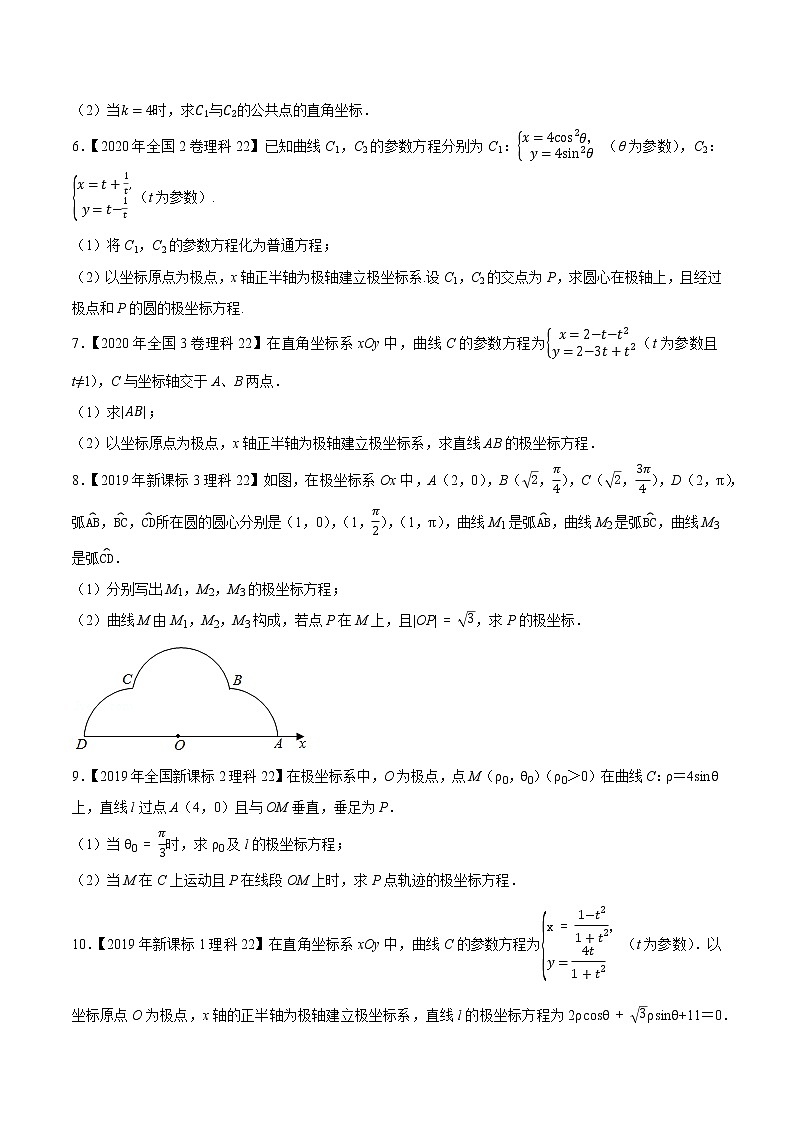 （2）当k＝4时，求C₁与C₂的公共点的直角坐标．
6.【2020年全国2卷理科22】已知曲线C₁，C₂的参数方程分别为C₁：{x＝4cos²θ, y＝4sin²θ （θ为参数），C₂：
{x＝t＋1/t, y＝t−1/t （t为参数）.
（1）将C₁，C₂的参数方程化为普通方程；
（2）以坐标原点为极点，x轴正半轴为极轴建立极坐标系.设C₁，C₂的交点为P，求圆心在极轴上，且经过
极点和P的圆的极坐标方程.
7.【2020年全国3卷理科22】在直角坐标系xOy中，曲线C的参数方程为{x＝2−t−t² y＝2−3t＋t²（t为参数且
t≠1），C与坐标轴交于A、B两点．
（1）求|AB|；
（2）以坐标原点为极点，x轴正半轴为极轴建立极坐标系，求直线AB的极坐标方程．
8.【2019年新课标3理科22】如图，在极坐标系Ox中，A（2，0），B（√2，π/4），C（√2，3π/4），D（2，π），
弧AB̂，BĈ，CD̂所在圆的圆心分别是（1，0），（1，π/2），（1，π），曲线M₁是弧AB̂，曲线M₂是弧BĈ，曲线M₃
是弧CD̂．
（1）分别写出M₁，M₂，M₃的极坐标方程；
（2）曲线M由M₁，M₂，M₃构成，若点P在M上，且|OP|＝√3，求P的极坐标．
C B
D O A x
9.【2019年全国新课标2理科22】在极坐标系中，O为极点，点M（ρ₀，θ₀）（ρ₀＞0）在曲线C：ρ＝4sinθ
上，直线l过点A（4，0）且与OM垂直，垂足为P．
（1）当θ₀＝π/3时，求ρ₀及l的极坐标方程；
（2）当M在C上运动且P在线段OM上时，求P点轨迹的极坐标方程．
10.【2019年新课标1理科22】在直角坐标系xOy中，曲线C的参数方程为{x＝(1−t²)/(1＋t²), y＝4t/(1＋t²) （t为参数）．以
坐标原点O为极点，x轴的正半轴为极轴建立极坐标系，直线l的极坐标方程为2ρcosθ＋√3ρsinθ+11＝0．